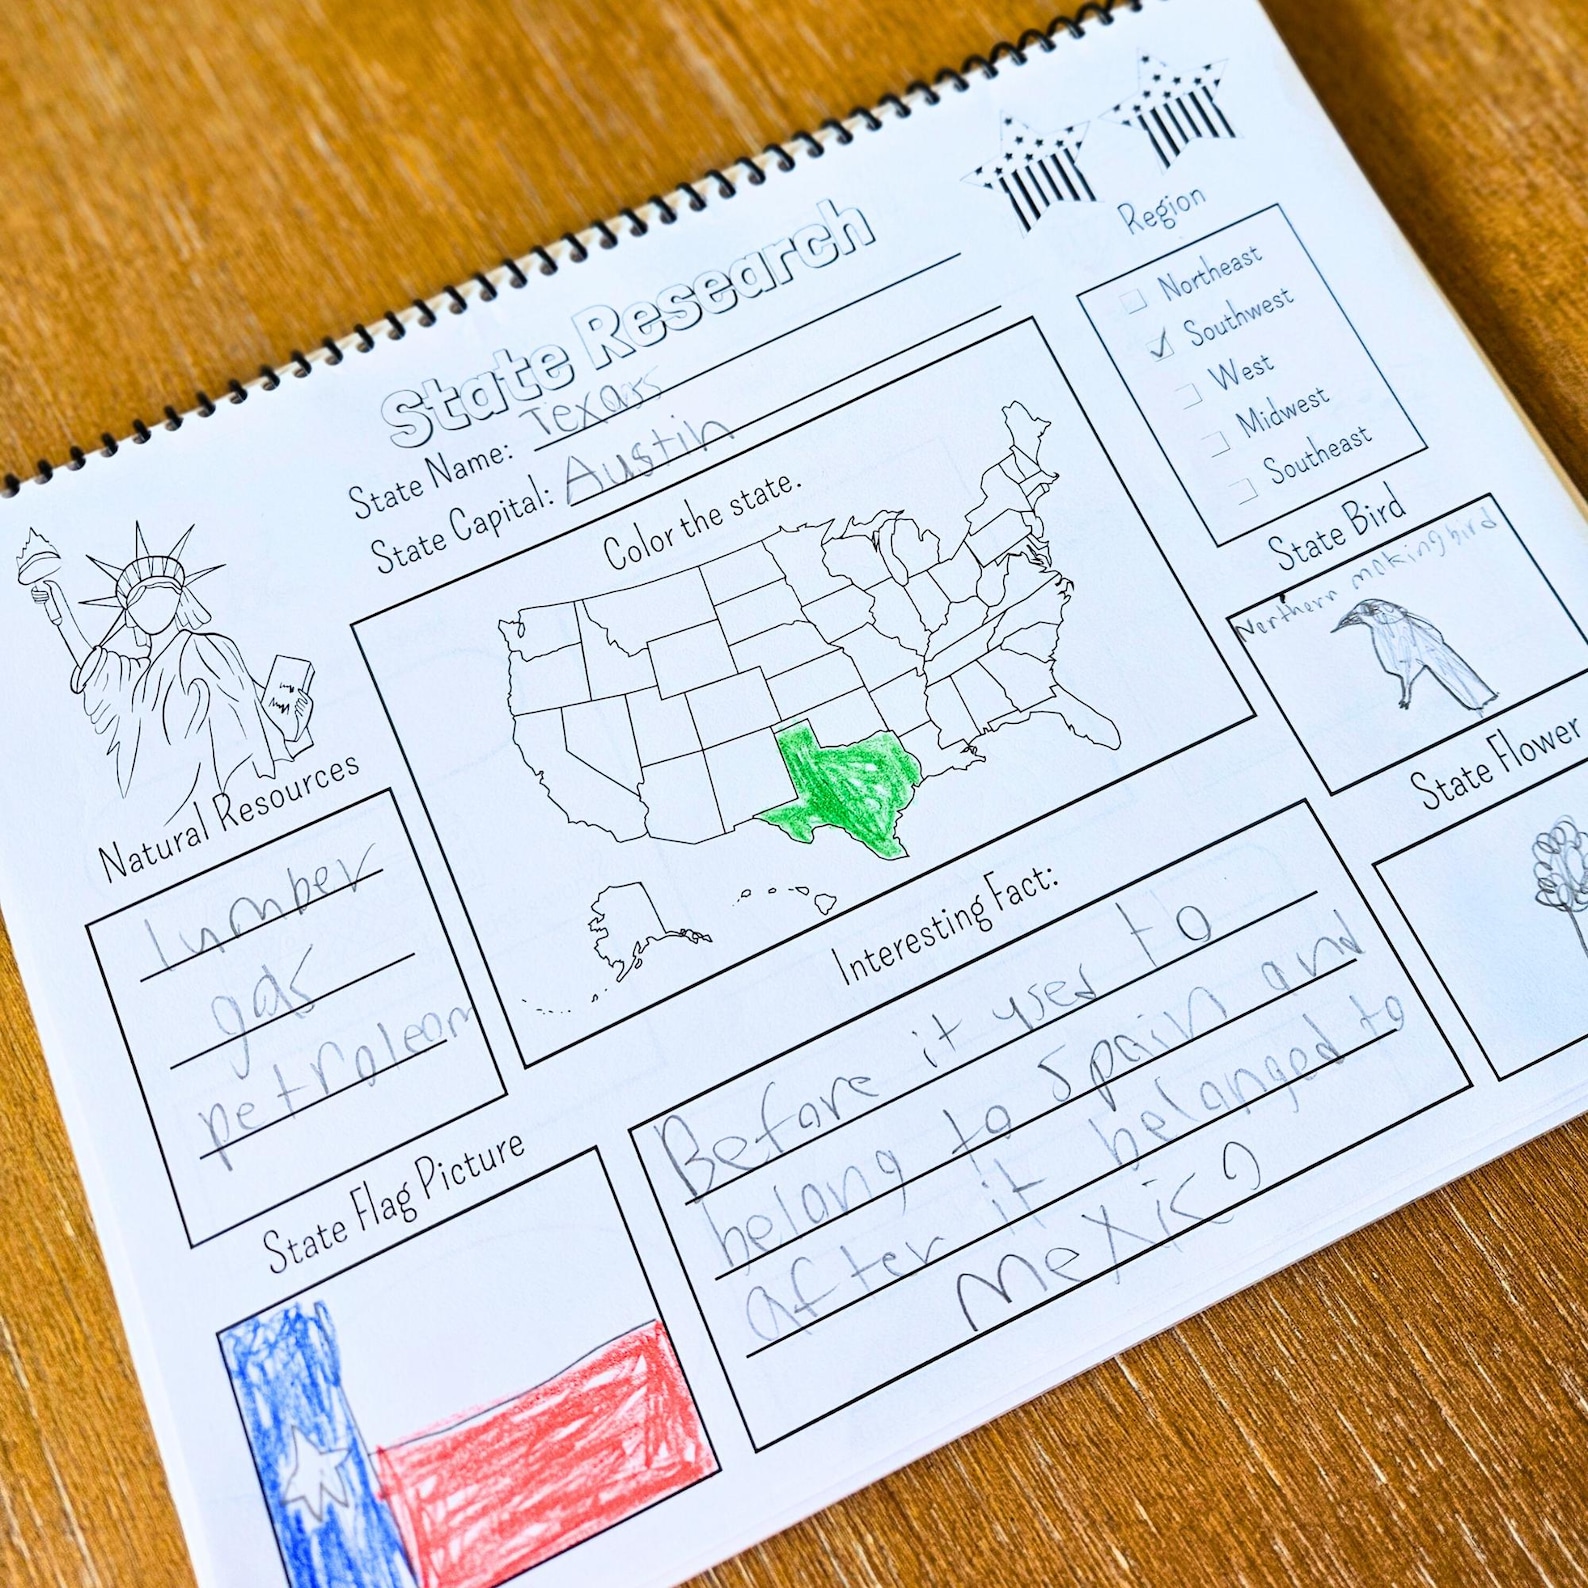 State Research
State Name: Texas
State Capital: Austin
Color the state.
Region
Northeast
Southwest
West
Midwest
Southeast
State Bird
Northern mokingbird
State Flower
Natural Resources
lumber
gas
petroleom
Interesting Fact:
Before it used to
belong to Spain and
after it belanged to
Mexico
State Flag Picture